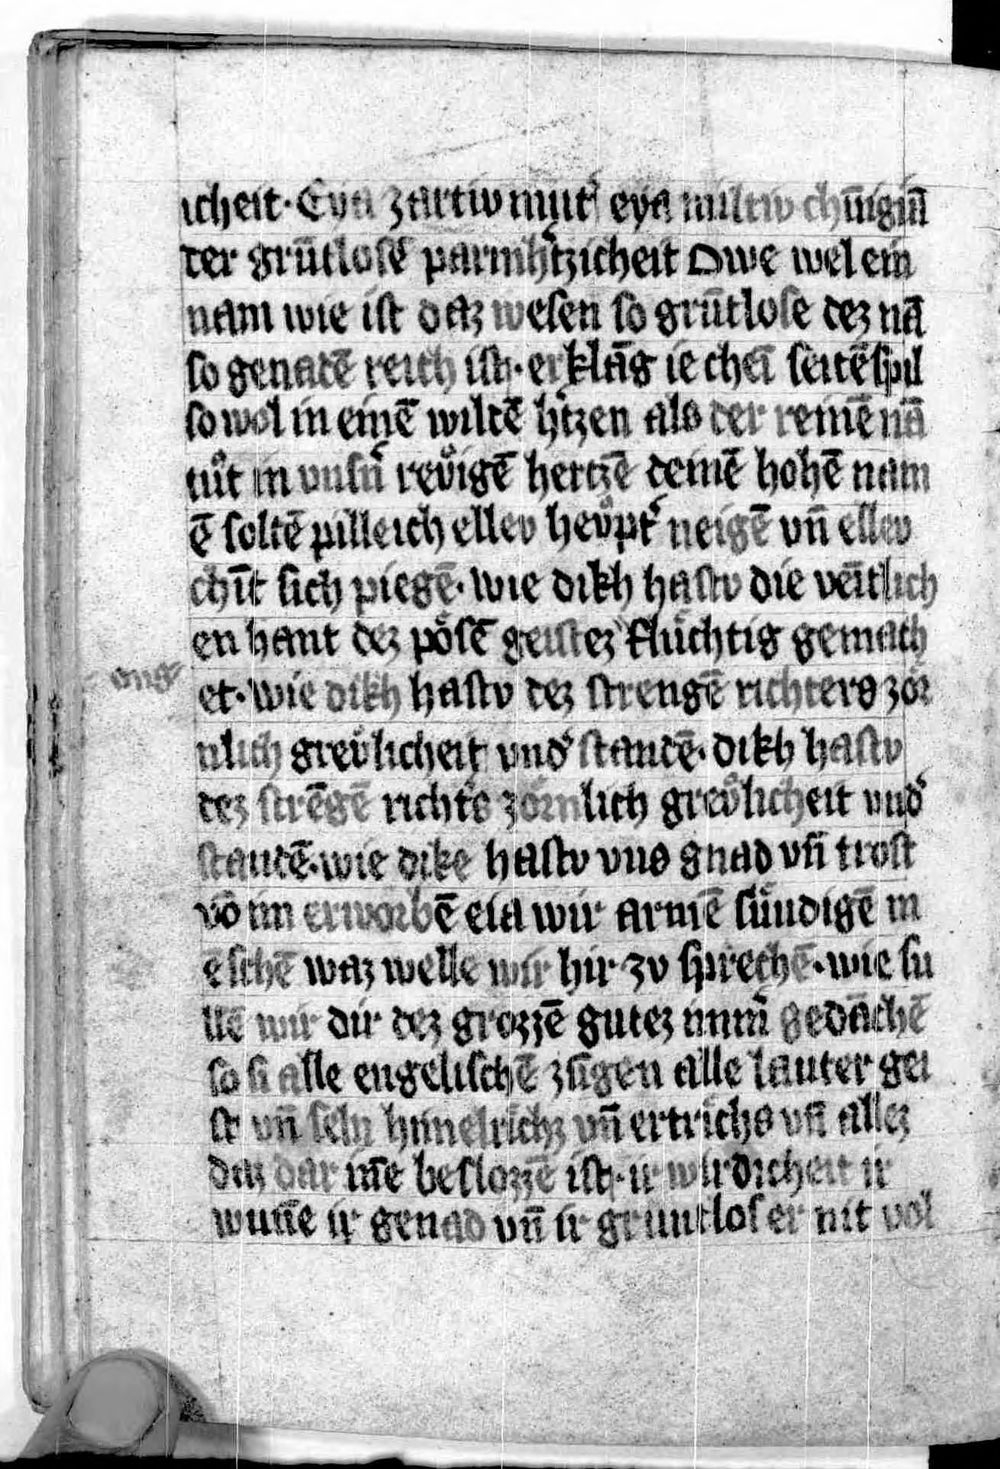 icheit · Eya zartiv mut᷎ eya miltiv chūigīn
der grūtlosē parmh᷎tzicheit Owe wel ein
nam wie ist daz wesen so grūtlose dez nā
so genadē reich ist · erklāg ie chei seitēspil
so wol in einē wildē h᷎tzen als der reinē nā
tůt in vnsn᷎ revͦigē hertzē deinē hohē nam
ē soltē pilleich ellev hevͦpt᷎ neigē vn̄ ellev
chīt sich piegē · wie dikh hastv die veītlich
en hant dez pösē geistez fluͤchtig gemach
et · wie dikh hastv dez strengē richters zor
nlich grevͦlicheit vnd᷎ standē · dikh hastv
dez strēgē richt᷎s zornlich grevͦlicheit vnd᷎
standē · wie dike hastv vns gnad vn̄ trost
vō im erworbē eia wir armē suͤndigē m
ēschē waz welle wir hir zv sprechē · wie su
llē wir dir dez grozzē gutez imm᷎ gedāchē
so si alle engelischē zūgen alle lauter gei
st vn̄ seln himelrichz vn̄ ertrichs vn̄ allez
daz dar īne beslozzē ist · ir wirdicheit ir
wun̄e ir genad vn̄ ir gruntloser nit vol